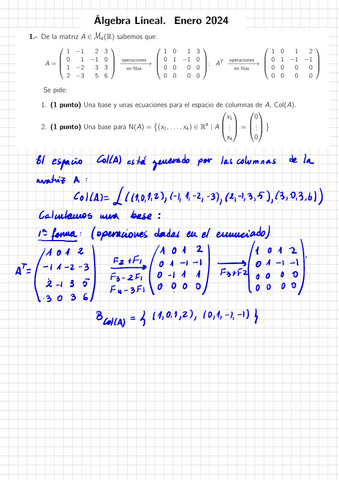 Álgebra Lineal. Enero 2024
1.- De la matriz A ∈ M₄(ℝ) sabemos que:
A = ( 1 -1 2 3 / 0 1 -1 0 / 1 -2 3 3 / 2 -3 5 6 ) operaciones en filas → ( 1 0 1 3 / 0 1 -1 0 / 0 0 0 0 / 0 0 0 0 ); Aᵀ operaciones en filas → ( 1 0 1 2 / 0 1 -1 -1 / 0 0 0 0 / 0 0 0 0 )
Se pide:
1. (1 punto) Una base y unas ecuaciones para el espacio de columnas de A, Col(A).
2. (1 punto) Una base para N(A) = {(x₁, ..., x₄) ∈ ℝ⁴ | A (x₁ ⋮ x₄) = (0 ⋮ 0)}
El espacio Col(A) está generado por las columnas de la
matriz A:
Col(A) = L((1,0,1,2), (-1,1,-2,-3), (2,-1,3,5), (3,0,3,6))
Calculemos una base:
1ª forma: (operaciones dadas en el enunciado)
Aᵀ = ( 1 0 1 2 / -1 1 -2 -3 / 2 -1 3 5 / 3 0 3 6 ) F2+F1 F3-2F1 F4-3F1 → ( 1 0 1 2 / 0 1 -1 -1 / 0 -1 1 1 / 0 0 0 0 ) F3+F2 → ( 1 0 1 2 / 0 1 -1 -1 / 0 0 0 0 / 0 0 0 0 ).
B Col(A) = { (1,0,1,2), (0,1,-1,-1) }